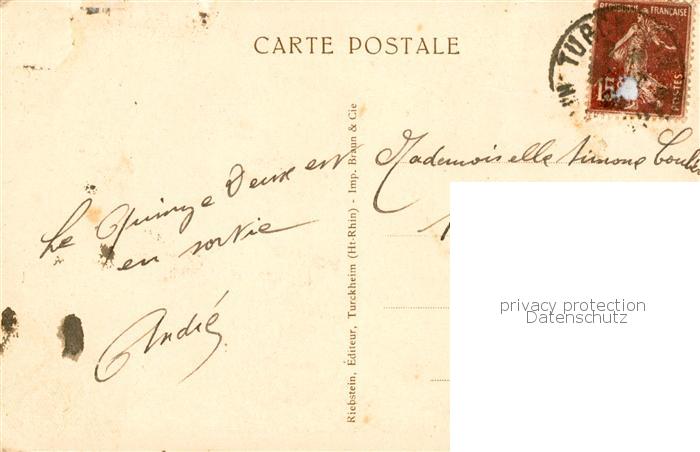 CARTE POSTALE
REPUBLIQUE FRANÇAISE
POSTES
15
TUR
Le Quinze Deux est
en sortie
André
Riebstein, Editeur, Turckheim (Ht-Rhin) - Imp. Braun & Cie
Mademoiselle Simone
privacy protection
Datenschutz